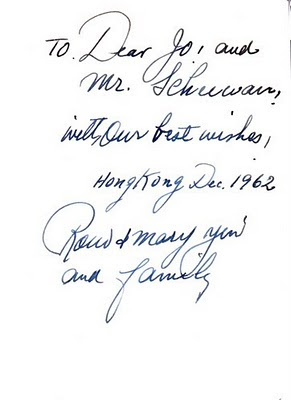 To. Dear Jo, and
Mr.
with Our best wishes,
HongKong Dec. 1962
& Mary Yin
and family